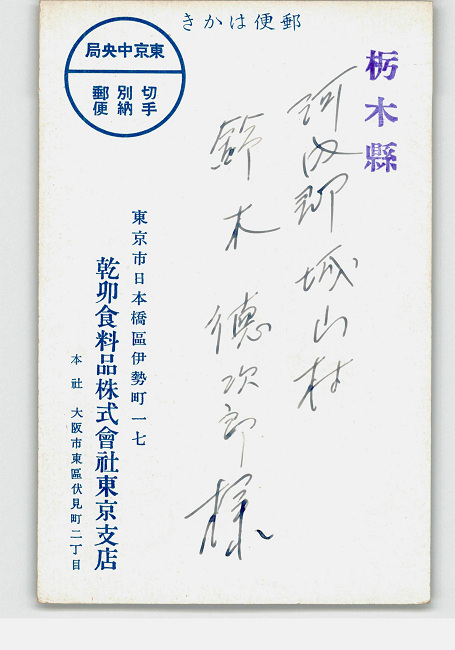 郵便はかき
栃木縣
河内郡城山村
鈴木德次郎様
東京中央局
切手
別納
郵便
東京市日本橋區伊勢町一七
乾卯食料品株式會社東京支店
本社 大阪市東區伏見町二丁目